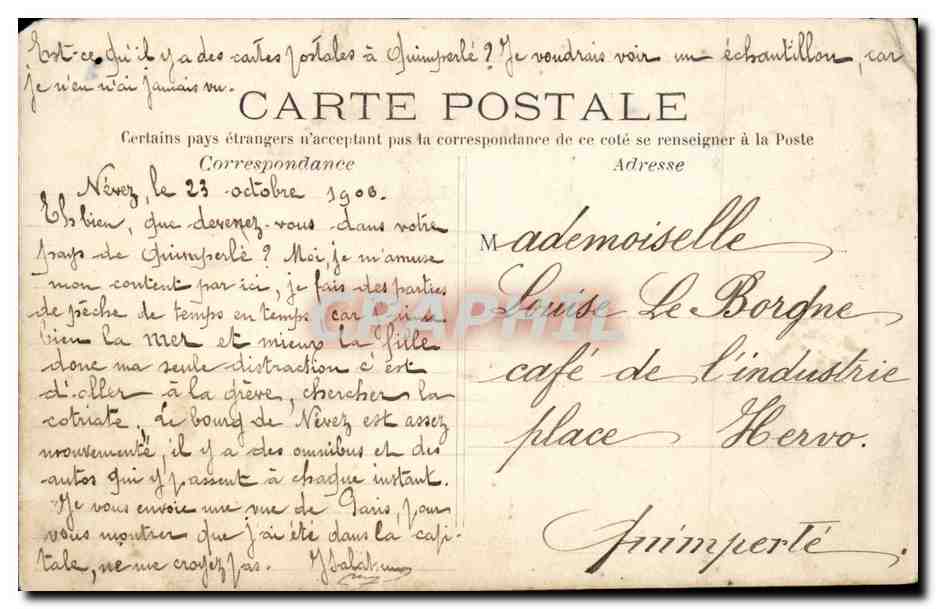 Est-ce qu'il y a des cartes postales à Quimperlé? Je voudrais voir un échantillon, car
je n'en n'ai jamais vu.
CARTE POSTALE
Certains pays étrangers n'acceptant pas la correspondance de ce coté se renseigner à la Poste
Correspondance
Névez, le 23 octobre 190
Eh bien, que devenez-vous dans votre
pays de Quimperlé? Moi, je m'amuse
mon content par ici, je fais des parties
de pêche de temps en temps car
bien la mer et mieux la fille
donc ma seule distraction c'est
d'aller à la grève, chercher la
cotriate. Le bourg de Névez est assez
mouvementé, il y a des omnibus et des
autos qui y passent à chaque instant.
Je vous envoie une vue de Paris, pour
vous montrer que j'ai été dans la capi-
tale, ne me croyez pas.
Adresse
Mademoiselle
Louise Le Borgne
café de l'industrie
place Hervo.
Quimperlé.
CPAPHIL